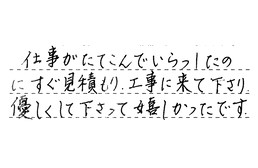 仕事がたてこんでいらっしたの
にすぐ見積もり.工事に来て下さり.
優しくして下さって嬉しかったです.